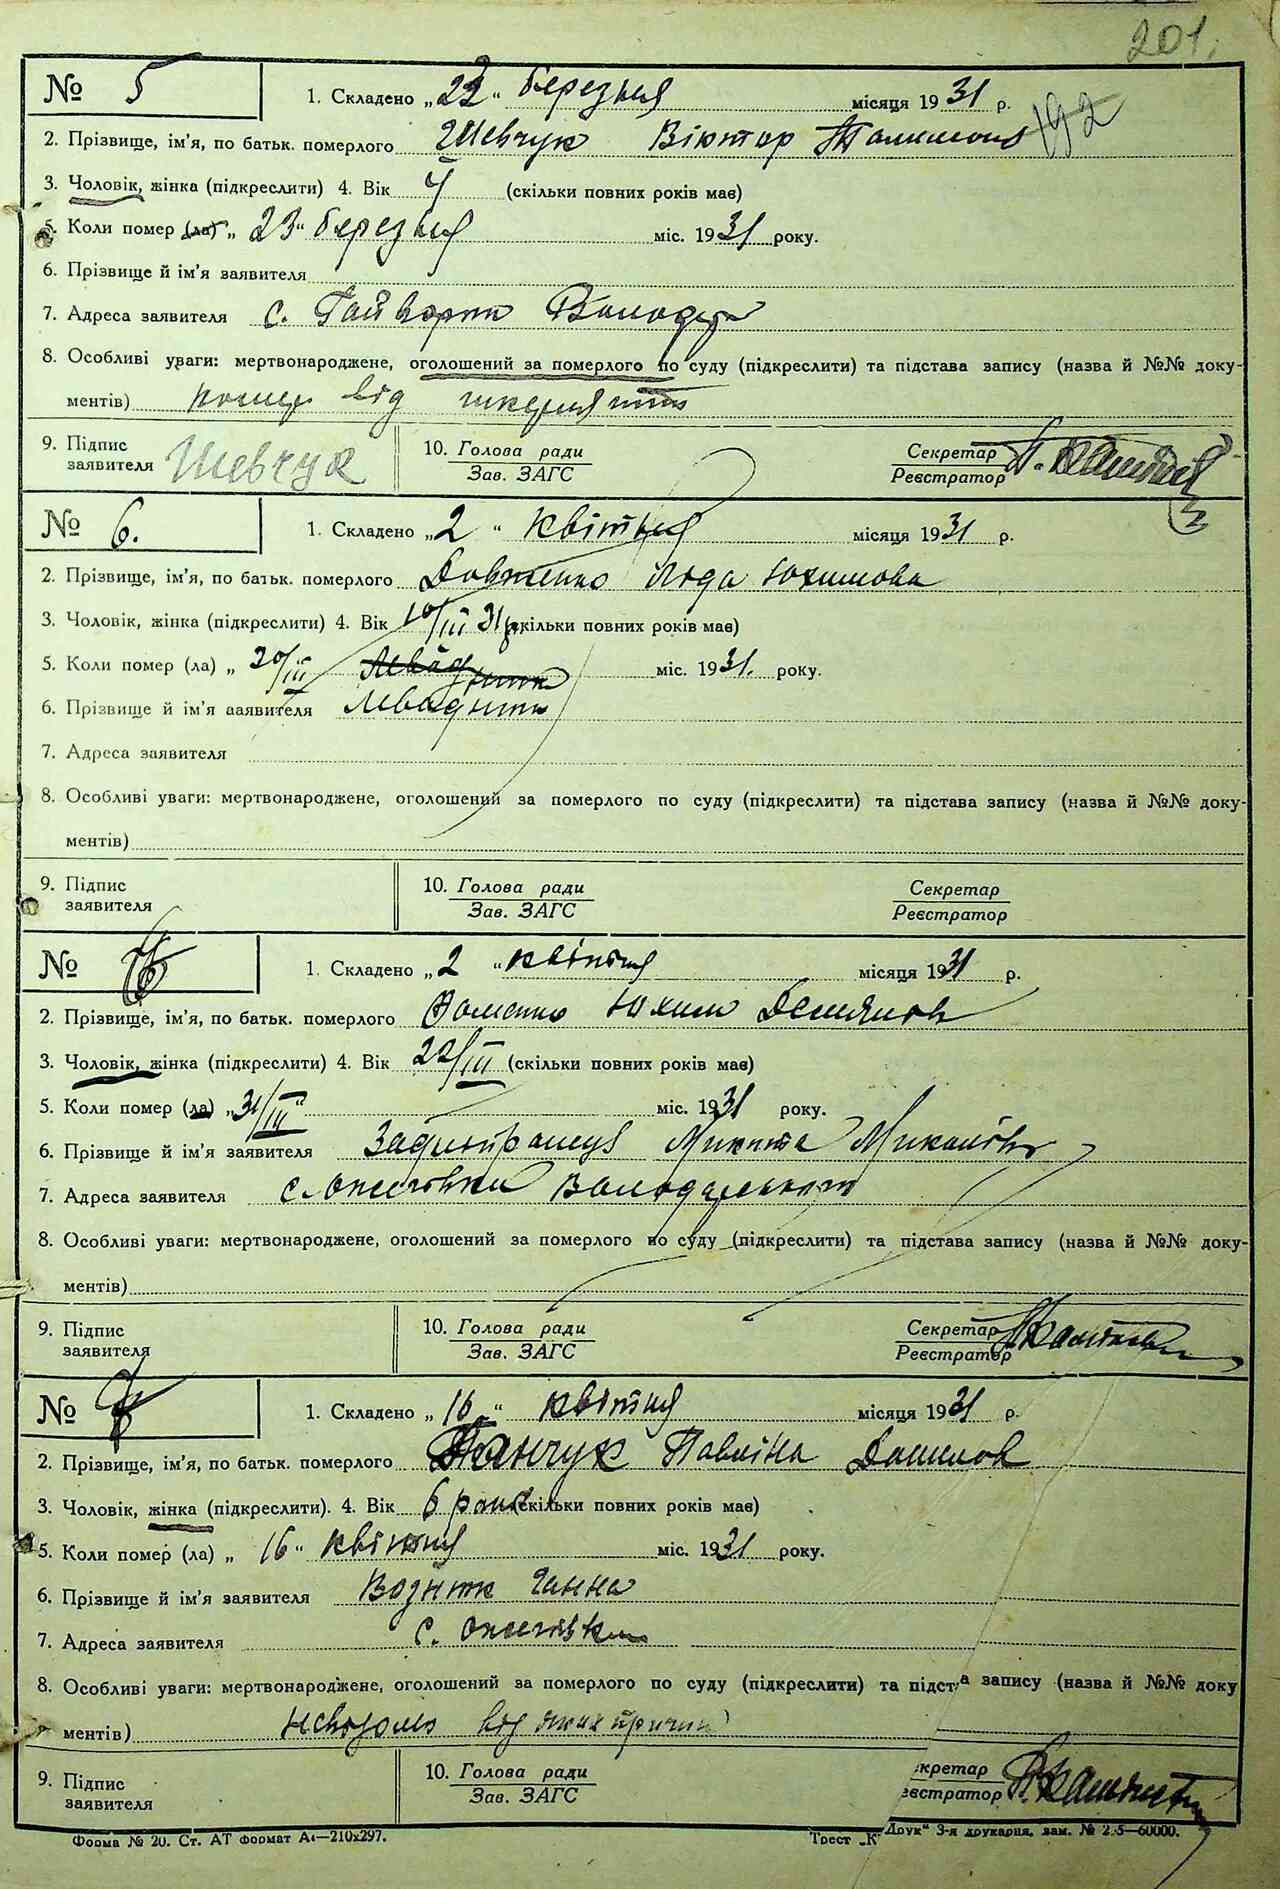 201.
№ 5 1. Складено „23“ березня місяця 1931 р.
192
2. Прізвище, ім'я, по батьк. померлого Шевчук Віктор
3. Чоловік, жінка (підкреслити) 4. Вік 4 (скільки повних років має)
5. Коли помер (ла) „23“ березня міс. 1931 року.
6. Прізвище й ім'я заявителя
7. Адреса заявителя с. Гайворон Володар
8. Особливі уваги: мертвонароджене, оголошений за померлого по суду (підкреслити) та підстава запису (назва й №№ доку-
ментів) помер від
9. Підпис заявителя Шевчук 10. Голова ради Зав. ЗАГС Секретар Реєстратор
№ 6. 1. Складено „2“ квітня місяця 1931 р.
2. Прізвище, ім'я, по батьк. померлого Довженко Люда Юхимова
3. Чоловік, жінка (підкреслити) 4. Вік 10/III 31 р. (скільки повних років має)
5. Коли помер (ла) „20/III міс. 1931. року.
6. Прізвище й ім'я заявителя
7. Адреса заявителя
8. Особливі уваги: мертвонароджене, оголошений за померлого по суду (підкреслити) та підстава запису (назва й №№ доку-
ментів)
9. Підпис заявителя 10. Голова ради Зав. ЗАГС Секретар Реєстратор
№ 6 1. Складено „2“ квітня місяця 1931 р.
2. Прізвище, ім'я, по батьк. померлого Юхим Демянов
3. Чоловік, жінка (підкреслити) 4. Вік 22/III (скільки повних років має)
5. Коли помер (ла) „31/III“ міс. 1931 року.
6. Прізвище й ім'я заявителя Микита Миколаїв
7. Адреса заявителя с. Ожегівка Володарського
8. Особливі уваги: мертвонароджене, оголошений за померлого по суду (підкреслити) та підстава запису (назва й №№ доку-
ментів)
9. Підпис заявителя 10. Голова ради Зав. ЗАГС Секретар Реєстратор
№ 7 1. Складено „16“ квітня місяця 1931 р.
2. Прізвище, ім'я, по батьк. померлого Панчук Павліна Данилов
3. Чоловік, жінка (підкреслити). 4. Вік 6 років (скільки повних років має)
5. Коли помер (ла) „16“ квітня міс. 1931 року.
6. Прізвище й ім'я заявителя Ганна
7. Адреса заявителя с. Ожегівка
8. Особливі уваги: мертвонароджене, оголошений за померлого по суду (підкреслити) та підстава запису (назва й №№ доку
ментів) невідомо від яких причин
9. Підпис заявителя 10. Голова ради Зав. ЗАГС кретар еєстратор
Форма № 20. Ст. АТ формат А4—210х297. Трест „К Друк“ 3-я друкарня, зам. № 2 5—60000.